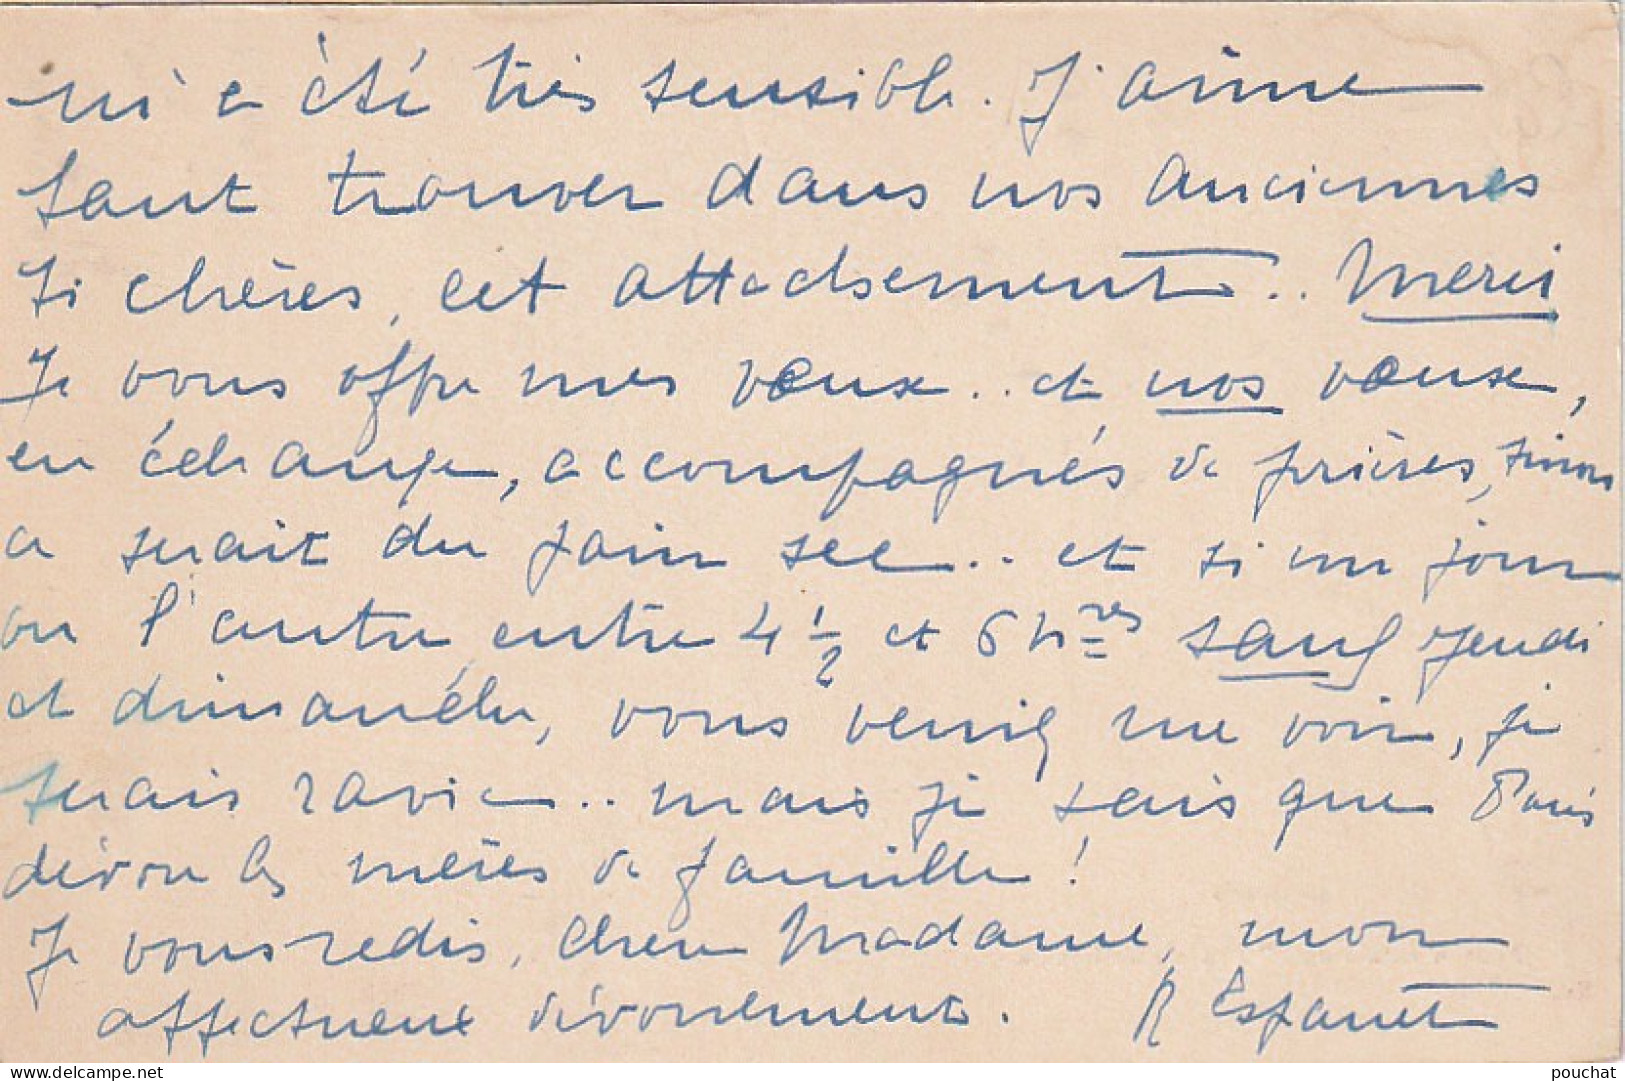 m'a été très sensible. J'aime
tant trouver dans nos anciennes
si chères, cet attachement.. Merci
Je vous offre mes vœux.. et nos vœux,
en échange, accompagnés de prières, sinon
ce serait du pain sec.. et si un jour
ou l'autre, entre 4 1/2 et 6 hres sauf Jeudi
et dimanche, vous veniez me voir, je
serais ravie.. mais je sais que Paris
dévore les mères de famille !
Je vous redis, chère Madame, mon
affectueux dévouement. R Espanet
pouchat